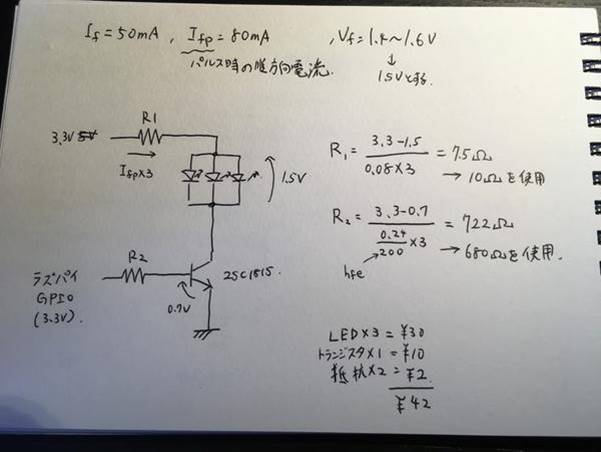 If = 50mA , Ifp = 80mA , Vf = 1.4~1.6V
パルス時の順方向電流.
↓
1.5Vとする.
R1
3.3V 5V
Ifp×3
1.5V
R1 = 3.3-1.5 / 0.08×3 = 7.5Ω
→ 10Ωを使用
R2 = 3.3-0.7 / 0.24/200 ×3 = 722Ω
→ 680Ωを使用.
hfe
R2
ラズパイ
GPIO
(3.3V)
0.7V
2SC1815.
LED×3 = ¥30
トランジスタ×1 = ¥10
抵抗×2 = ¥2
¥42